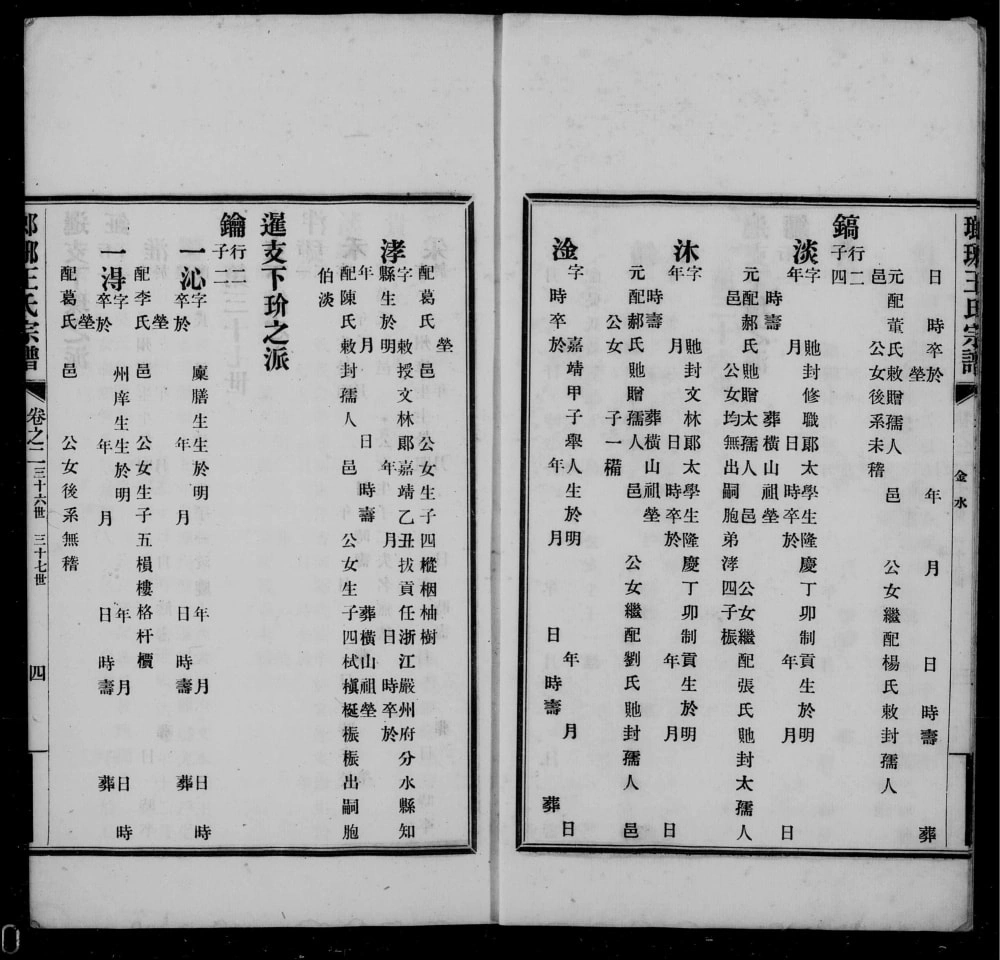 瑯琊王氏宗譜
金水
日　時卒於　年　月　日　時壽　葬
塋
元配董氏敕贈孺人　邑　公女繼配楊氏敕封孺人
邑　公女後系未稽
鎬 行二
子四
淡 字　貤封修職郞太學生隆慶丁卯制貢生於明
年　月　日　時卒於　年　月　日
時壽　葬橫山祖塋
元配郝氏貤贈太孺人　邑　公女繼配張氏貤封太孺人
邑　公女均無出嗣胞弟涍四子桭
沐 字　貤封文林郞太學生隆慶丁卯制貢生於明
年　月　日　時卒於　年　月　日
時壽　葬橫山祖塋
元配郝氏貤贈孺人　邑　公女繼配劉氏貤封孺人　邑
公女　子一
淦 字　嘉靖甲子舉人生於明　年　月　日
時卒於　年　月　日　時壽　葬
塋
配葛氏　邑　公女生子四樅棞柚樹
涍 字　敕授文林郞嘉靖乙丑拔貢任浙江嚴州府分水縣知
縣生於明　年　月　日　時卒於
年　月　日　時壽　葬橫山祖塋
配陳氏敕封孺人　邑　公女生子四栻槇梃桭桭出嗣胞
伯淡
暹支下玠之派
鑰 行二
子二
一沁 字　廩膳生生於明　年　月　日　時
卒於　年　月　日　時壽　葬
塋
配李氏　邑　公女生子五樌樓格杆檟
一淂 字　州庠生生於明　年　月　日　時
卒於　年　月　日　時壽　葬
塋
配葛氏　邑　公女後系無稽
瑯琊王氏宗譜　卷之二　三十六世　三十七世　四